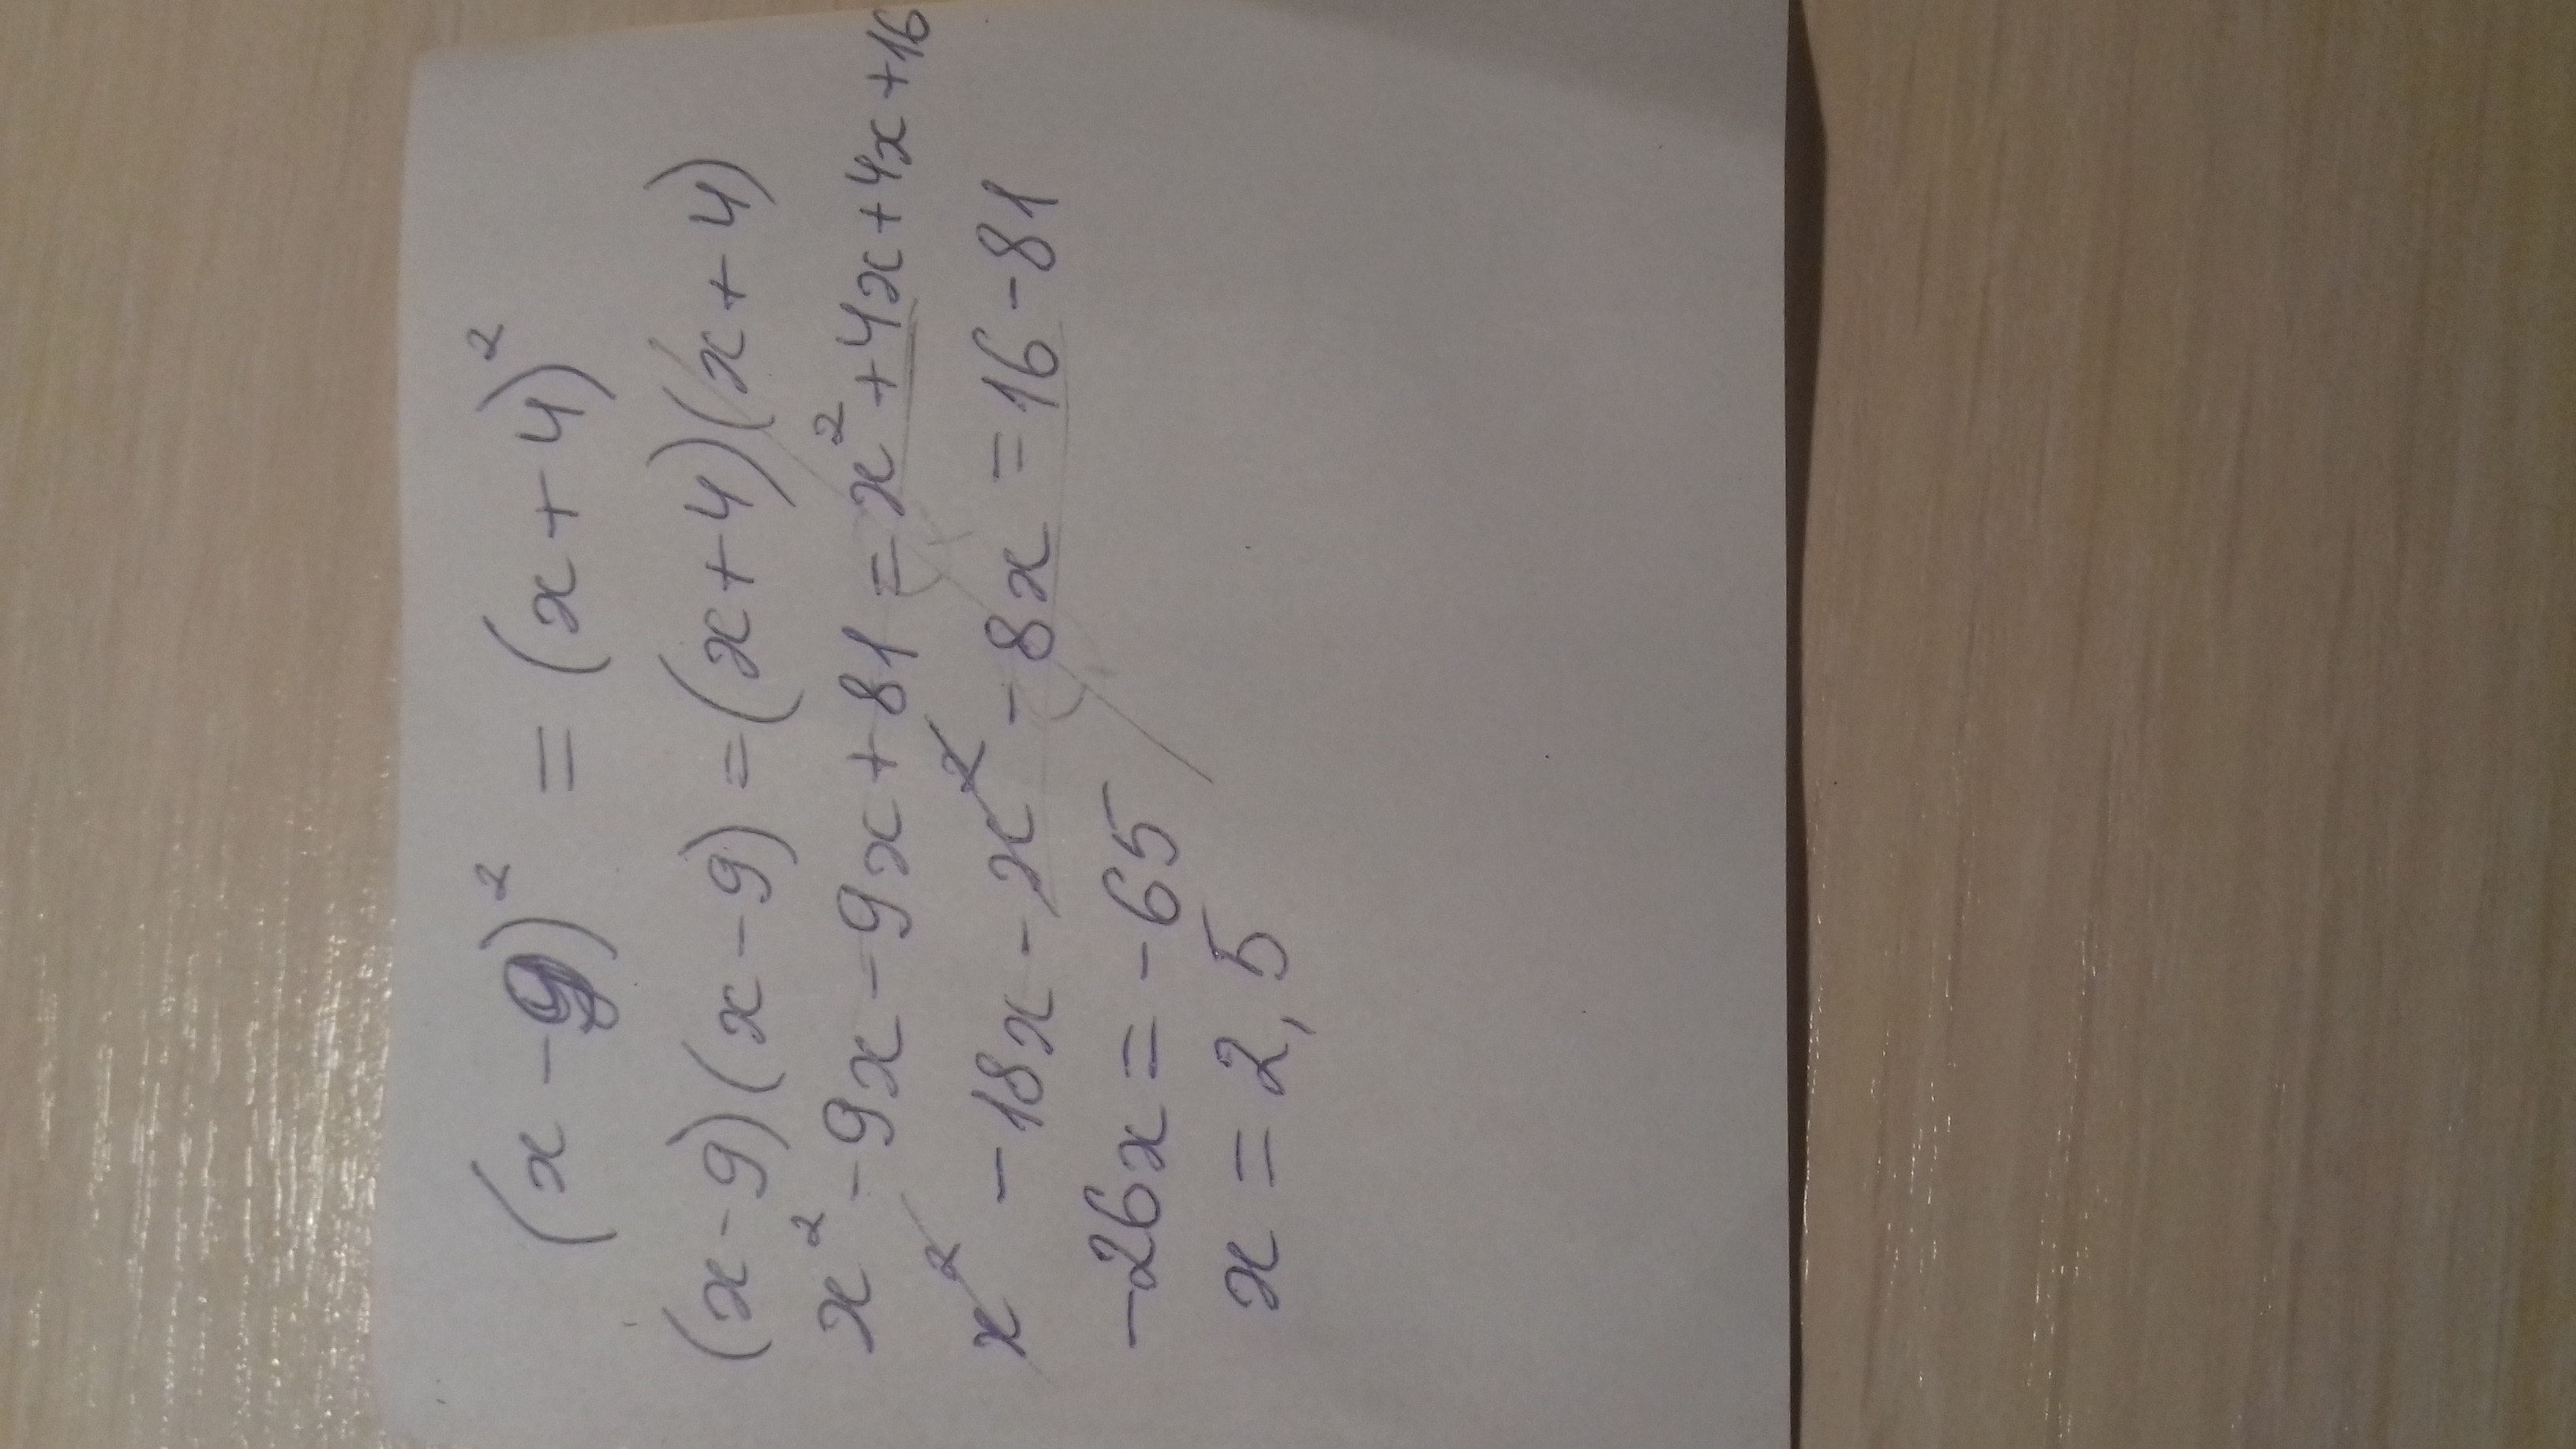 (x-9)² = (x+4)²
(x-9)(x-9)=(x+4)(x+4)
x²-9x-9x+81=x²+4x+4x+16
x²-18x-x²-8x=16-81
-26x=-65
x=2,5